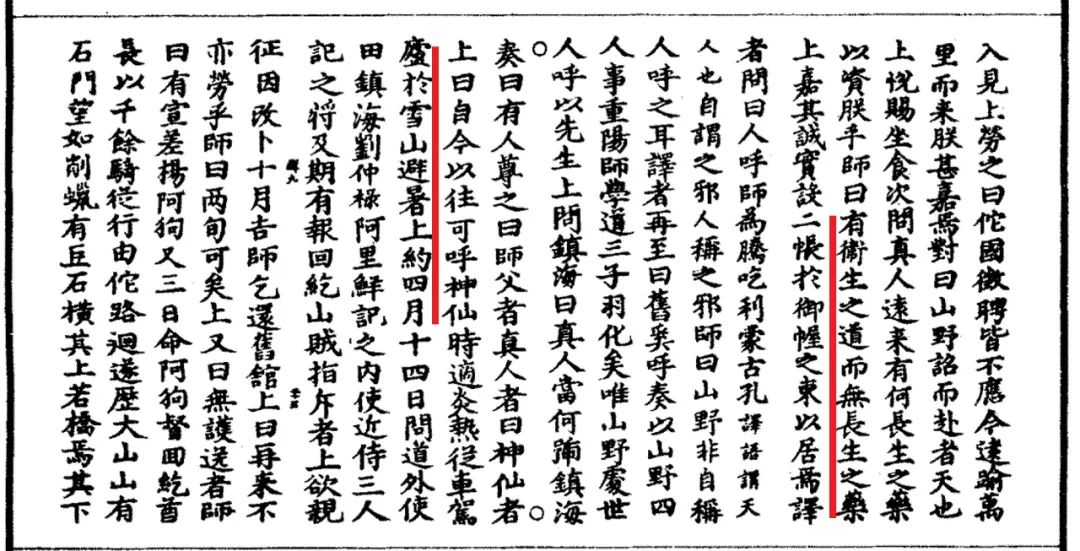 入見上勞之曰佗國徵聘皆不應今逺踰萬
里而来朕甚嘉焉對曰山野詔而赴者天也
上恱賜坐食次問真人逺来有何長生之藥
以資朕乎師曰有衛生之道而無長生之藥
上嘉其誠實設二帳於御幄之東以居焉譯
者問曰人呼師為騰吃利蒙古孔譯語謂天
人也自謂之邪人稱之邪師曰山野非自稱
人呼之耳譯者再至曰舊奚呼奏以山野四
人事重陽師學道三子羽化矣唯山野處世
人呼以先生上問鎮海曰真人當何號鎮海
奏曰有人尊之曰師父者真人者曰神仙者
上曰自今以往可呼神仙時適炎熱從車駕
廬於雪山避暑上約四月十四日問道外使
田鎮海劉仲祿阿里鮮記之内使近侍三人
記之將及期有報回紇山賊指斥者上欲親
征因改卜十月吉師乞還舊舘上曰再来不
亦勞乎師曰两旬可矣上又曰無護送者師
曰有宣差楊阿狗又三日命阿狗督回紇酋
長以千餘騎從行由佗路迴遂歷大山山有
石門望如削蠟有巨石橫其上若橋焉其下